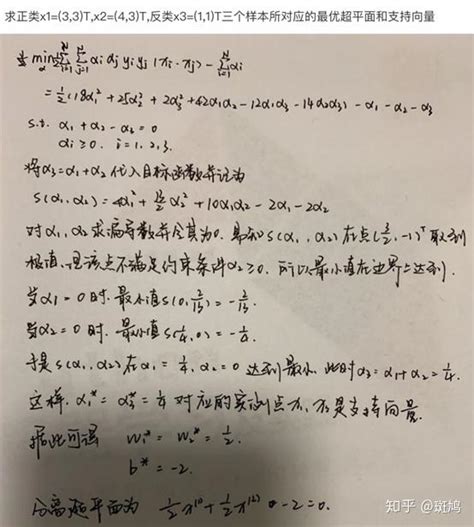 求正类x1=(3,3)T,x2=(4,3)T,反类x3=(1,1)T三个样本所对应的最优超平面和支持向量
min α ½ Σ^N i=1 Σ^N j=1 αi αj yi yj (xi·xj) − Σ^N i=1 αi
= ½(18α₁² + 25α₂² + 2α₃² + 42α₁α₂ − 12α₁α₃ − 14α₂α₃) − α₁ − α₂ − α₃
s.t. α₁ + α₂ − α₃ = 0
αi ≥ 0, i = 1, 2, 3.
将α₃ = α₁ + α₂ 代入目标函数并记为
S(α₁, α₂) = 4α₁² + 13/2 α₂² + 10α₁α₂ − 2α₁ − 2α₂
对α₁, α₂ 求偏导数并令其为0. 易知 S(α₁, α₂) 在点(3/2, −1)ᵀ 取到
极值, 但该点不满足约束条件α₂ ≥ 0. 所以最小值在边界上达到.
当α₁ = 0 时. 最小值 S(0, 2/13) = −2/13.
当α₂ = 0 时. 最小值 S(¼, 0) = −¼.
于是 S(α₁, α₂) 在 α₁ = ¼, α₂ = 0 达到最小. 此时 α₃ = α₁ + α₂ = ¼.
这样. α₁* = α₃* = ¼ 对应的实例点 x₁, x₃ 是支持向量.
据此可得 w₁* = w₂* = ½.
b* = −2.
分离超平面为 ½x⁽¹⁾ + ½x⁽²⁾ − 2 = 0.
知乎 @斑鸠